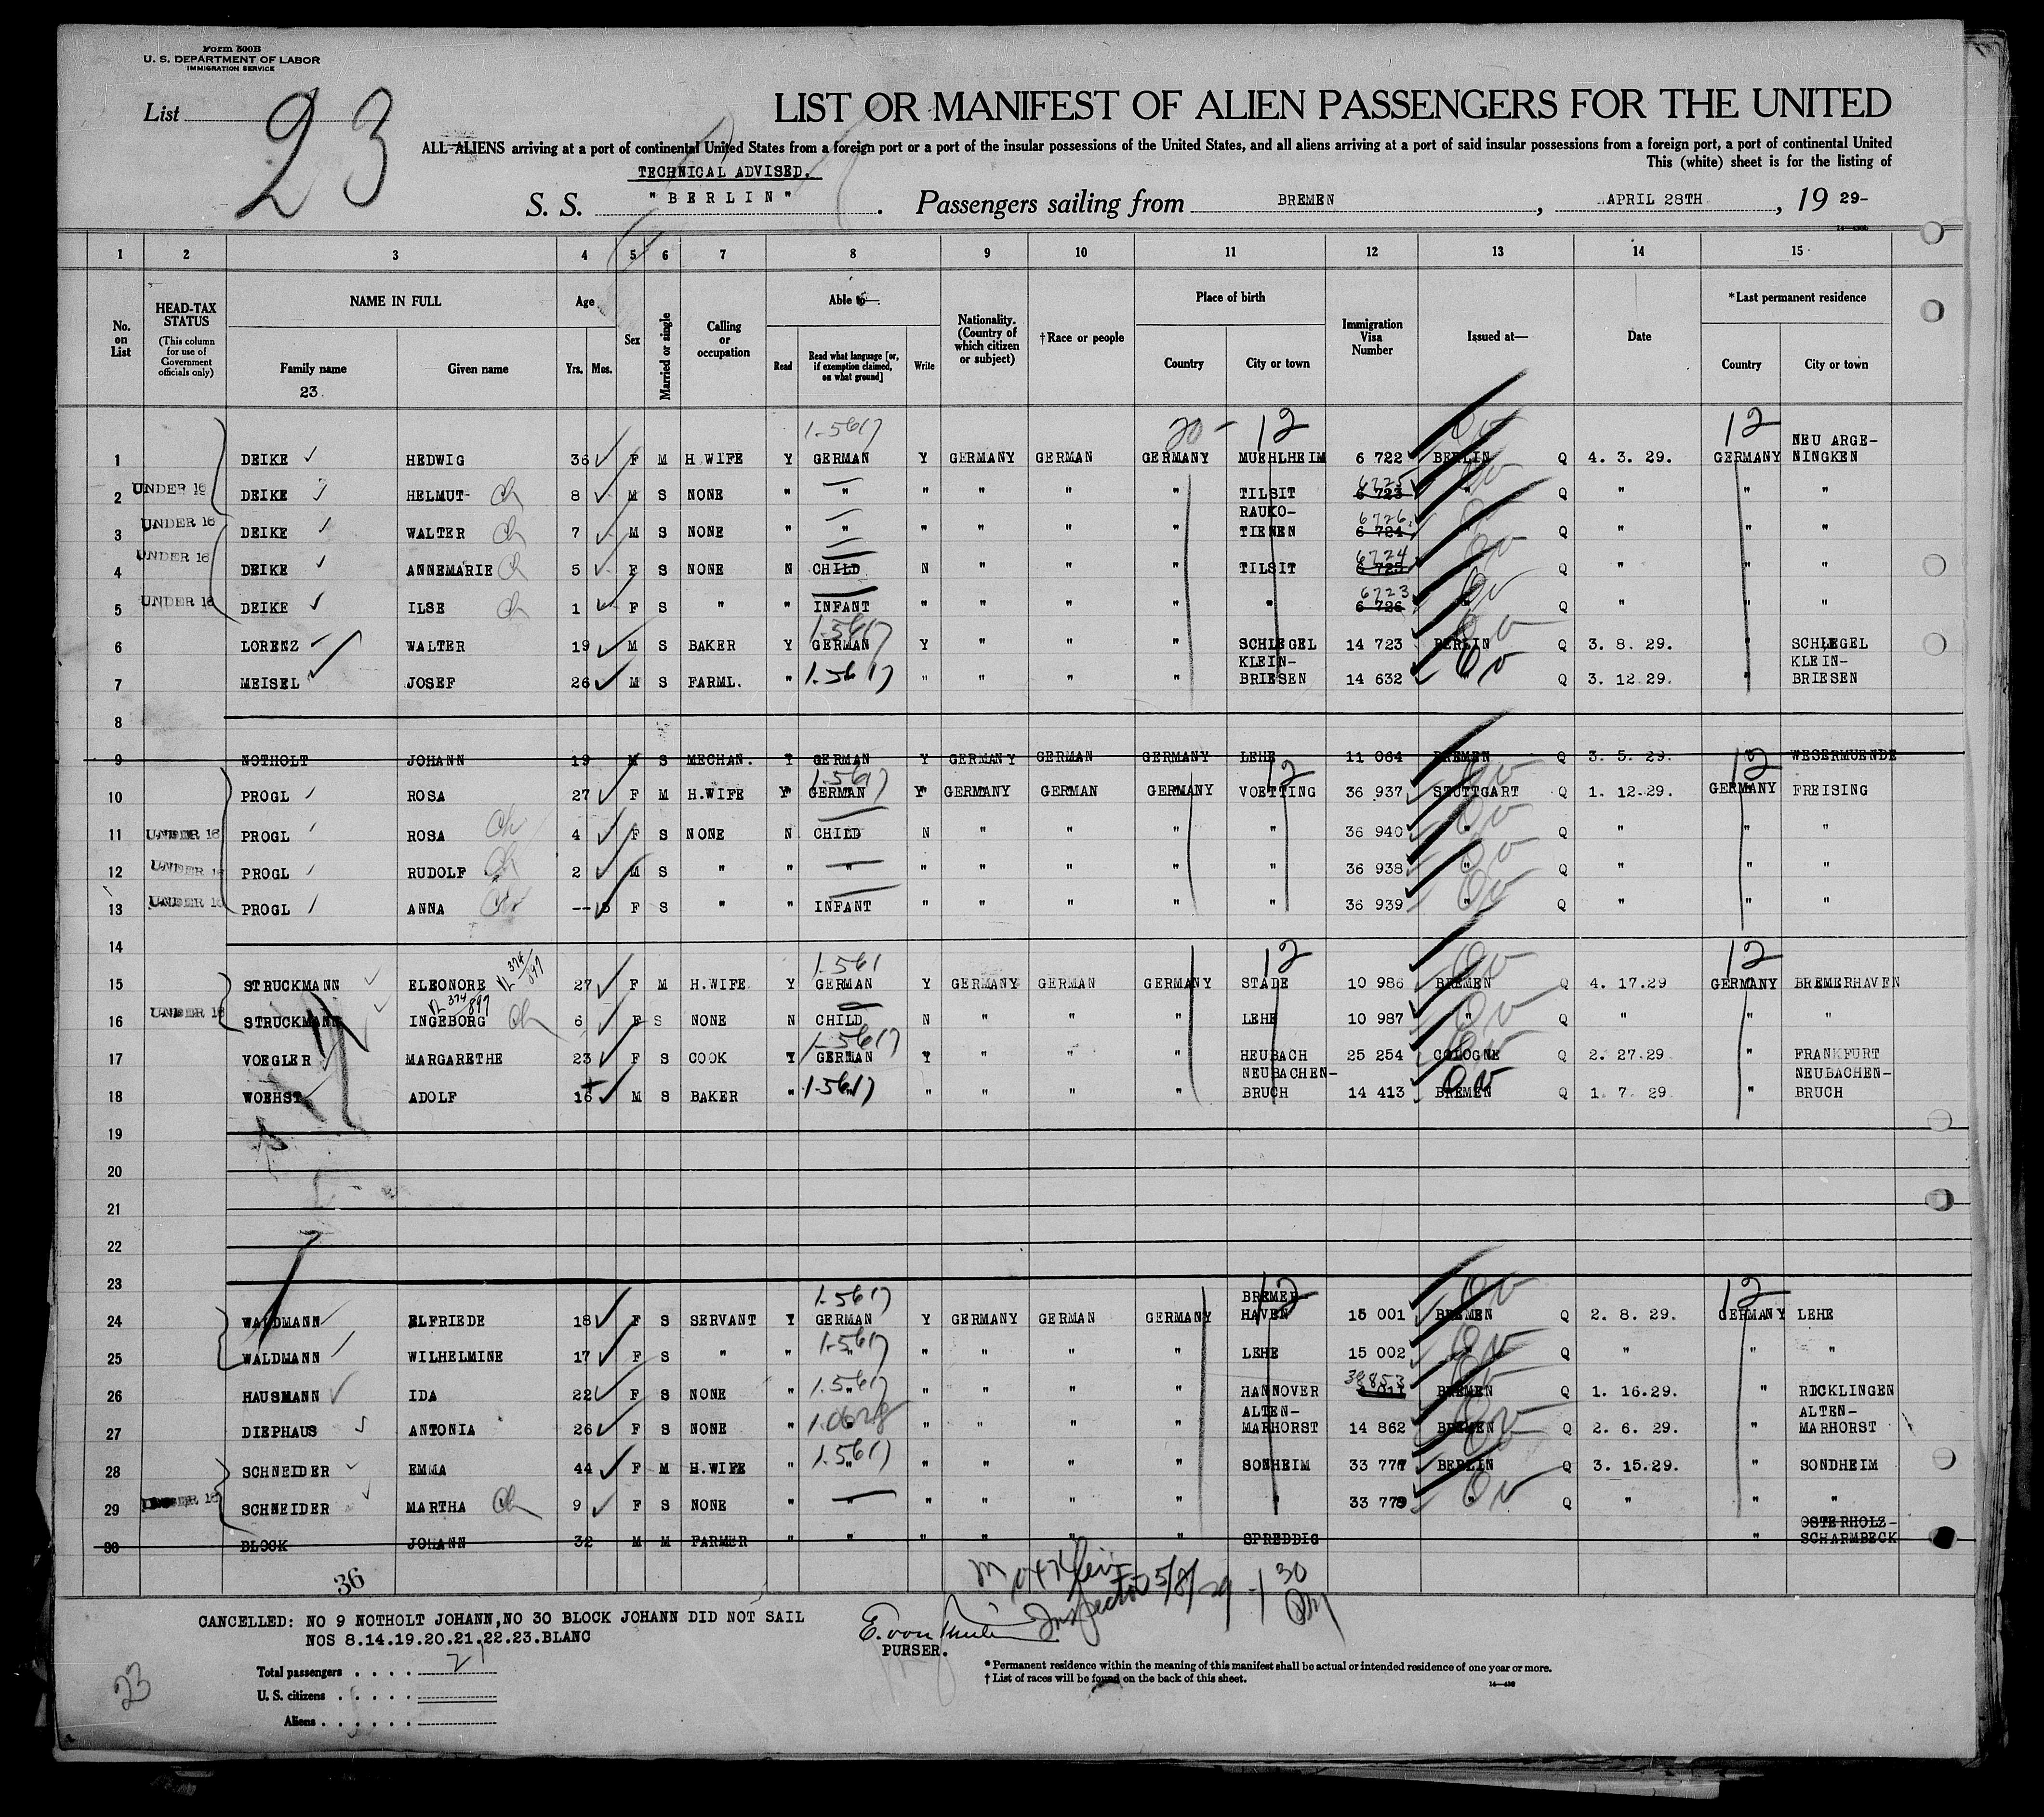 Form 500B
U. S. DEPARTMENT OF LABOR
IMMIGRATION SERVICE
List 23
LIST OR MANIFEST OF ALIEN PASSENGERS FOR THE UNITED
ALL ALIENS arriving at a port of continental United States from a foreign port or a port of the insular possessions of the United States, and all aliens arriving at a port of said insular possessions from a foreign port, a port of continental United
This (white) sheet is for the listing of
TECHNICAL ADVISED.
S. S. "BERLIN". Passengers sailing from BREMEN, APRIL 28TH, 19 29-
1 2 3 4 5 6 7 8 9 10 11 12 13 14 15
No. on List HEAD-TAX STATUS (This column for use of Government officials only) NAME IN FULL Family name Given name Age Yrs. Mos. Sex Married or single Calling or occupation Able to— Read Read what language [or, if exemption claimed, on what ground] Write Nationality. (Country of which citizen or subject) †Race or people Place of birth Country City or town Immigration Visa Number Issued at— Date *Last permanent residence Country City or town
23
1-5617 20- 12 12 NEU ARGE-
1 DEIKE HEDWIG 36 F M H.WIFE Y GERMAN Y GERMANY GERMAN GERMANY MUEHLHEIM 6 722 BERLIN Q 4. 3. 29. GERMANY NINGKEN
2 UNDER 16 DEIKE HELMUT Ch 8 M S NONE " " " " " " TILSIT 6725 6 723 " Q " " "
RAUKO-
3 UNDER 16 DEIKE WALTER Ch 7 M S NONE " " " " " " TIENEN 6726 6 724 " Q " " "
4 UNDER 16 DEIKE ANNEMARIE Ch 5 F S NONE N CHILD N " " " TILSIT 6724 6 725 " Q " " "
5 UNDER 16 DEIKE ILSE Ch 1 F S " " INFANT " " " " " 6723 6 726 " Q " " "
1-5617
6 LORENZ WALTER 19 M S BAKER Y GERMAN Y " " " SCHLEGEL 14 723 BERLIN Q 3. 8. 29. " SCHLEGEL
KLEIN- KLEIN-
7 MEISEL JOSEF 26 M S FARML. " 1-5617 " " " " BRIESEN 14 632 " Q 3. 12.29. " BRIESEN
8
9 NOTHOLT JOHANN 19 M S MECHAN. Y GERMAN Y GERMANY GERMAN GERMANY LEHE 11 064 BREMEN Q 3. 5. 29. " WESERMUENDE
1-5617 12 12
10 PROGL ROSA 27 F M H.WIFE Y GERMAN Y GERMANY GERMAN GERMANY VOETTING 36 937 STUTTGART Q 1. 12.29. GERMANY FREISING
11 UNDER 16 PROGL ROSA Ch 4 F S NONE N CHILD N " " " " 36 940 " Q " " "
12 UNDER 16 PROGL RUDOLF Ch 2 M S " " " " " " " " 36 938 " Q " " "
13 UNDER 16 PROGL ANNA Ch -- F S " " INFANT " " " " " 36 939 " Q " " "
14
1-561 12 12
15 STRUCKMANN ELEONORE 374/897 27 F M H.WIFE Y GERMAN Y GERMANY GERMAN GERMANY STADE 10 986 BREMEN Q 4. 17.29 GERMANY BREMERHAVEN
374/897
16 UNDER 16 STRUCKMANN INGEBORG Ch 6 F S NONE N CHILD N " " " LEHE 10 987 " Q " " "
1-5617
17 VOEGLER MARGARETHE 23 F S COOK Y GERMAN Y " " " HEUBACH 25 254 COLOGNE Q 2. 27.29 " FRANKFURT
NEUBACHEN- NEUBACHEN-
18 WOEHST ADOLF 16 M S BAKER " 1-5617 " " " " BRUCH 14 413 BREMEN Q 1. 7. 29. " BRUCH
19
20
21
22
23
1-5617 BREMER- 12 12
24 WALDMANN ELFRIEDE 18 F S SERVANT Y GERMAN Y GERMANY GERMAN GERMANY HAVEN 15 001 BREMEN Q 2. 8. 29. GERMANY LEHE
25 WALDMANN WILHELMINE 17 F S " " 1-5617 " " " " LEHE 15 002 " Q " " "
26 HAUSMANN IDA 22 F S NONE " 1-5617 " " " " HANNOVER 38853 BREMEN Q 1. 16.29. " RICKLINGEN
ALTEN- ALTEN-
27 DIEPHAUS ANTONIA 26 F S NONE " " " " " MARHORST 14 862 BREMEN Q 2. 6. 29. " MARHORST
28 SCHNEIDER EMMA 44 F M H.WIFE " 1-5617 " " " " SONHEIM 33 777 BERLIN Q 3. 15.29. " SONDHEIM
29 UNDER 16 SCHNEIDER MARTHA Ch 9 F S NONE " " " " " " " 33 779 " Q " " "
OSTERHOLZ-
30 BLOCK JOHANN 32 M M FARMER " " " " " " SPREDDIG " SCHARMBECK
36
Max Klein
Inspector 5/8/29 - 1 30 PM
CANCELLED: NO 9 NOTHOLT JOHANN,NO 30 BLOCK JOHANN DID NOT SAIL
NOS 8.14.19.20.21.22.23.BLANC
E. von
PURSER.
23
Total passengers . . . . 21
U. S. citizens . . . . .
Aliens . . . . . .
* Permanent residence within the meaning of this manifest shall be actual or intended residence of one year or more.
† List of races will be found on the back of this sheet.